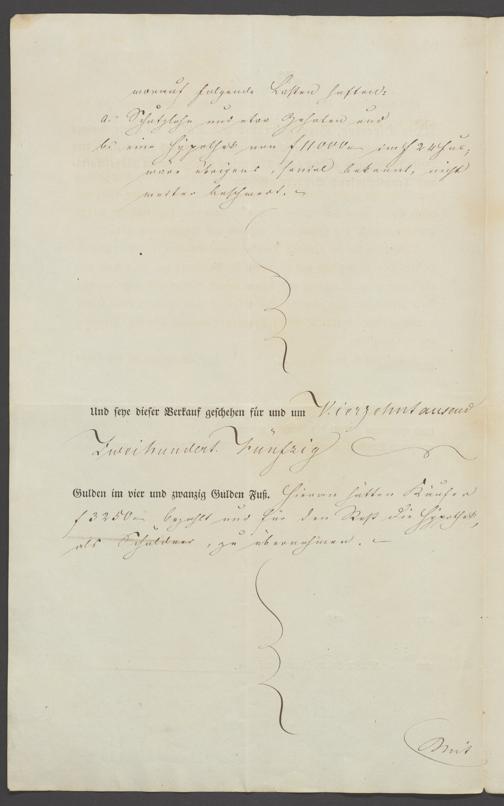 worauf folgende Lasten haften:
a. Schatzlohn und etwa Gehalten und
b. eine Hypothek von f 11000 im f 24 Fuß,
wäre übrigens, soviel bekannt, nicht
weiter beschwert.
Und seye dieser Verkauf geschehen für und um Vierzehntausend
Zweihundert Fünfzig
Gulden im vier und zwanzig Gulden Fuß. Hieran hätten Käufer
f 3250 bezahlt und für den Rest die Hypothek,
als Schuldner, zu übernehmen.
Mit